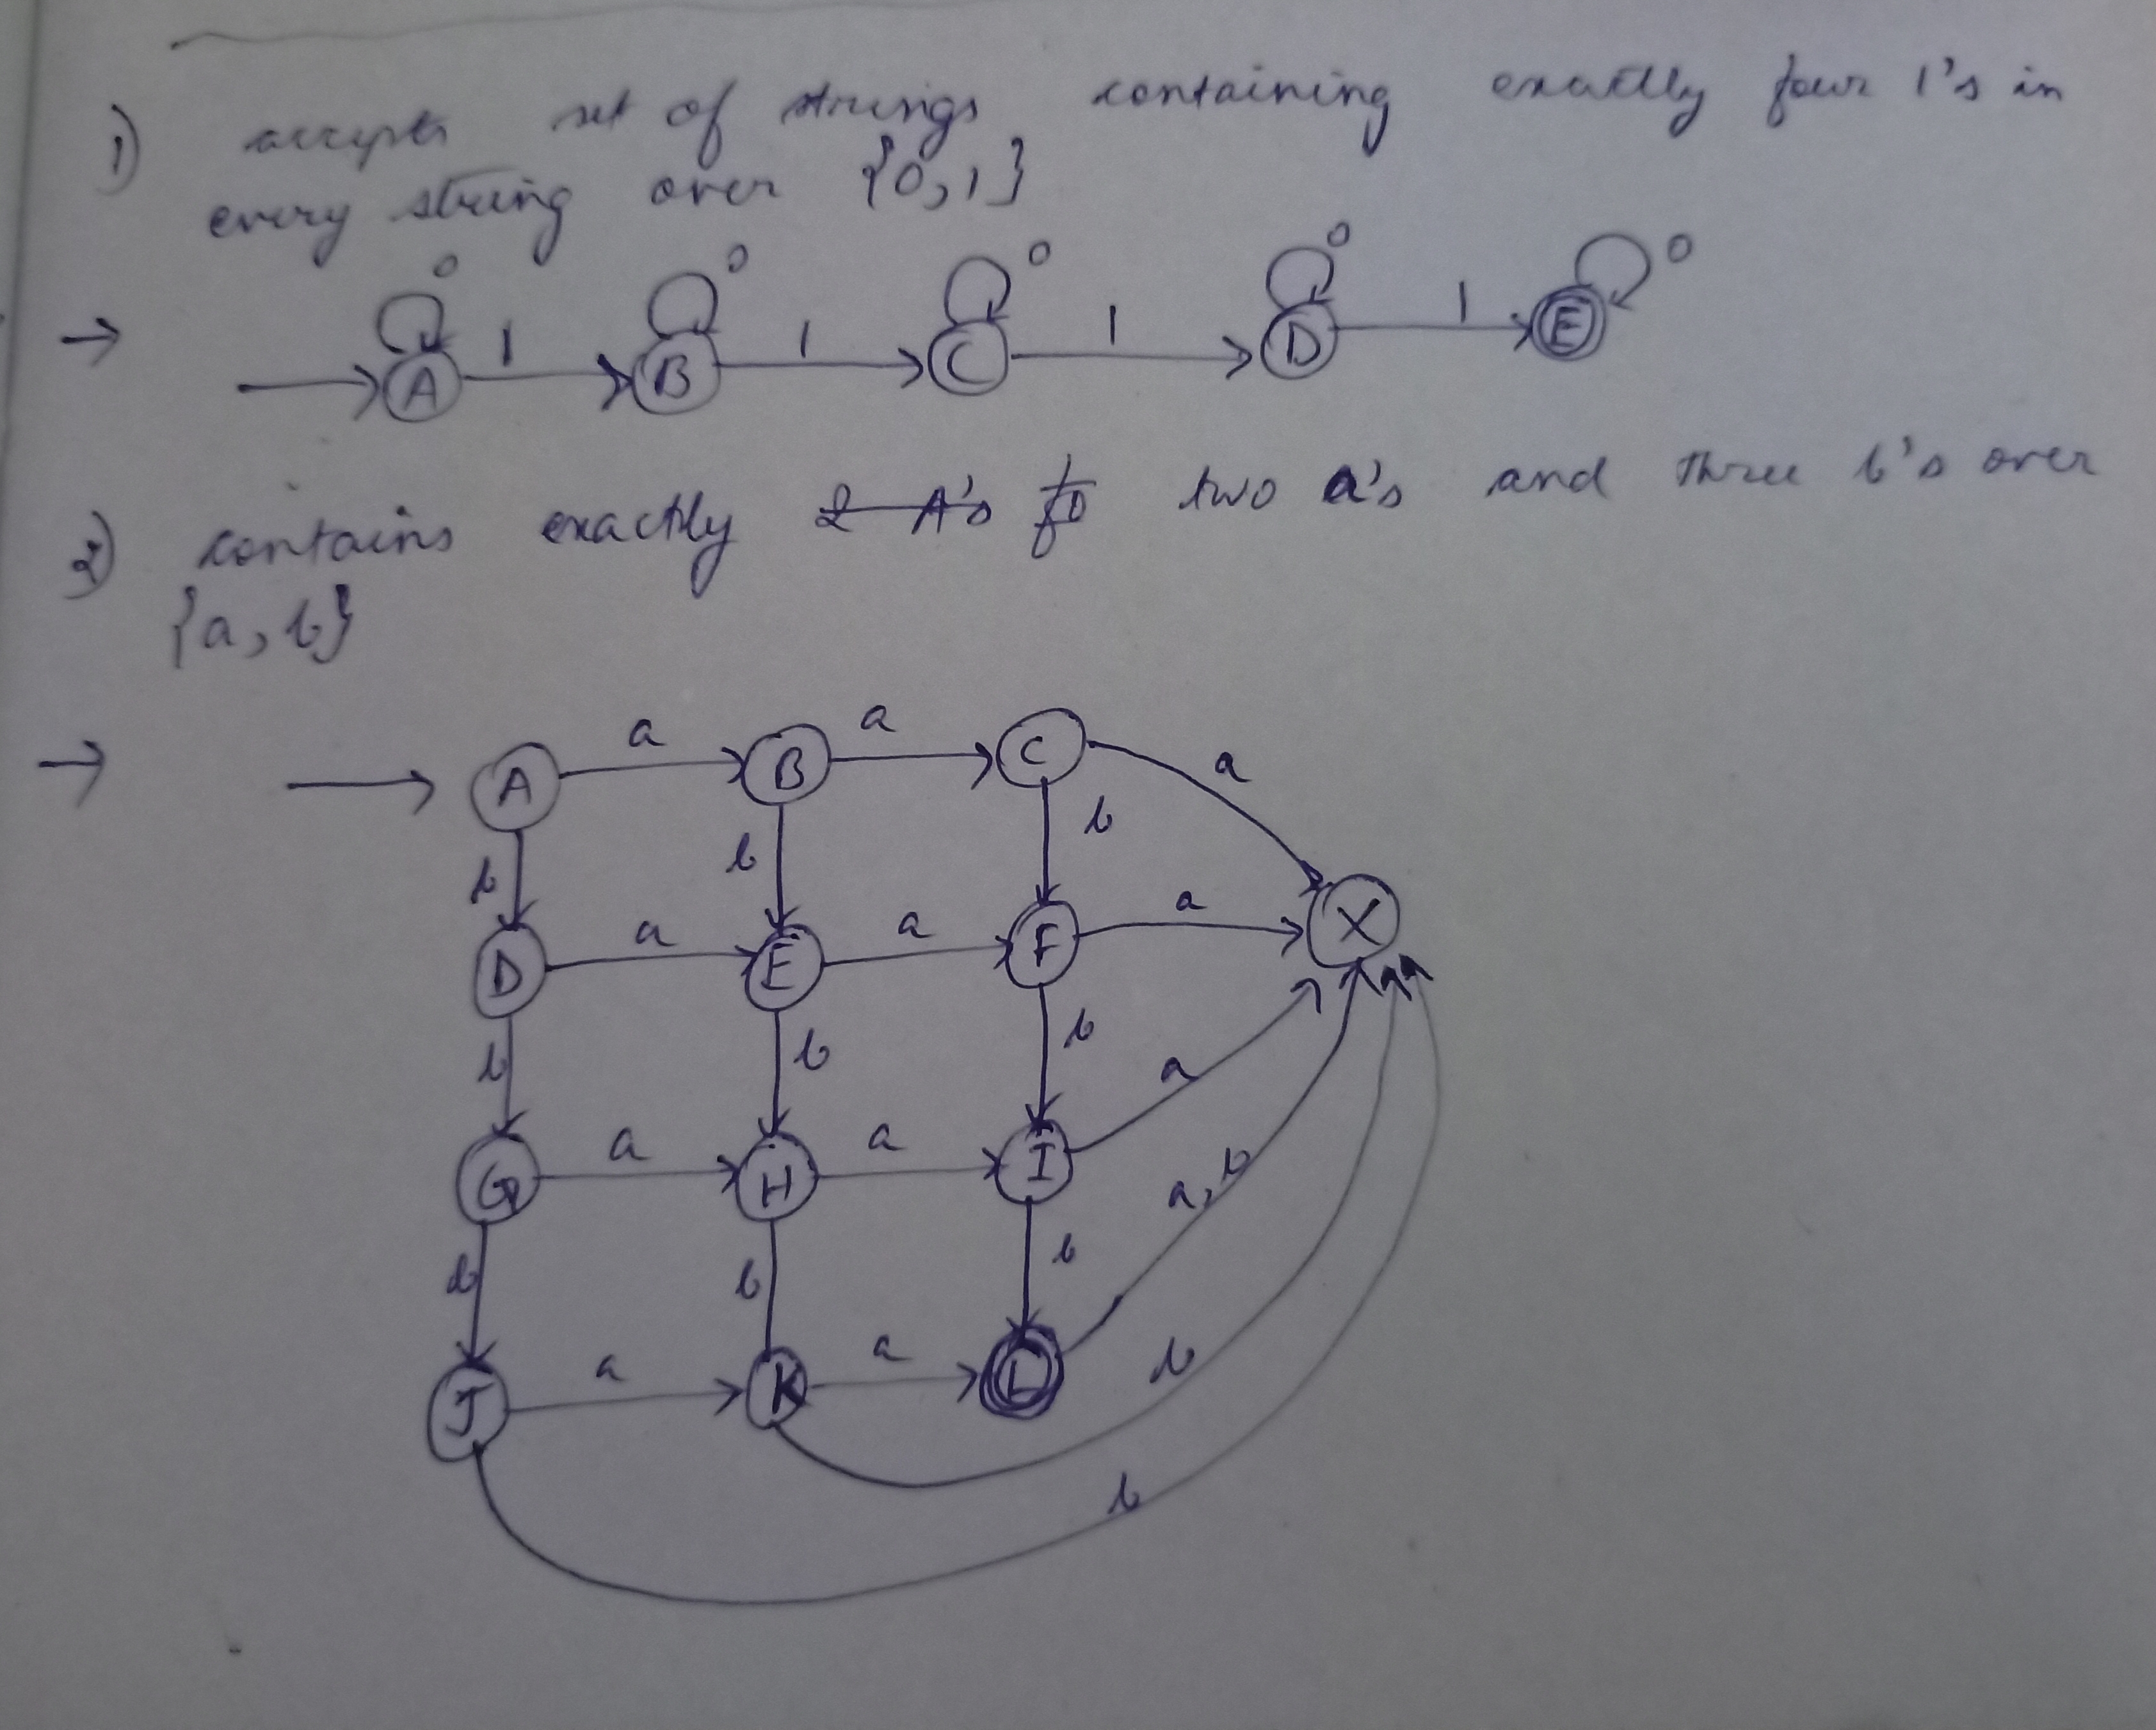 1) accepts set of strings containing exactly four 1's in
every string over {0,1}
0 0 0 0 0
→ A 1 B 1 C 1 D 1 E
2) contains exactly 2 A's two a's and three b's over
{a, b}
→ A a B a C a
b b b
D a E a F a X
b b b
G a H a I a
a, b
b b b
J a K a L b
b